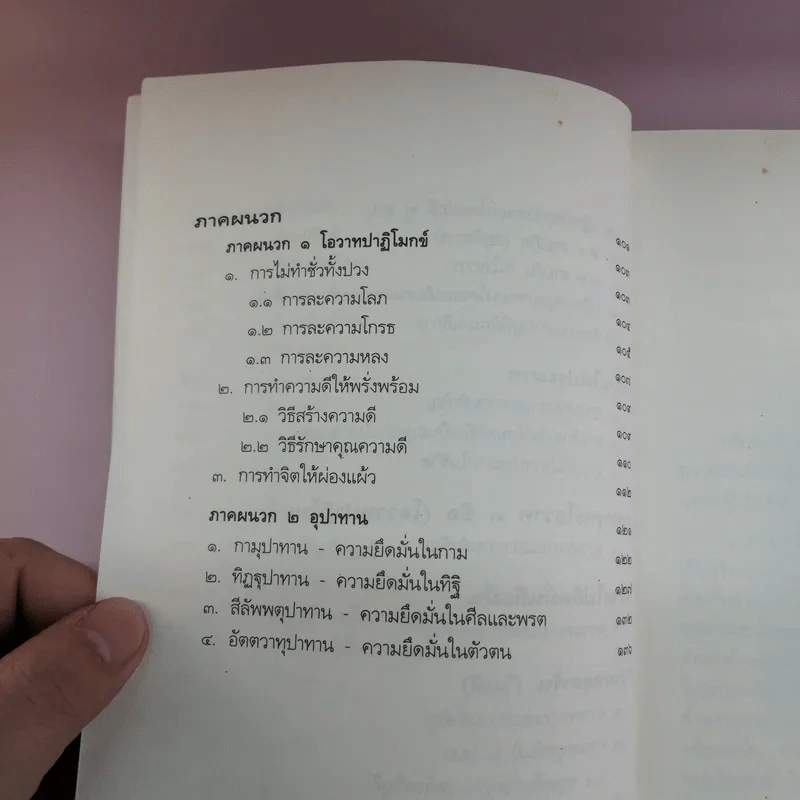 ภาคผนวก
ภาคผนวก ๑ โอวาทปาฏิโมกข์ ๑๐๑
๑. การไม่ทำชั่วทั้งปวง ๑๐๓
๑.๑ การละความโลภ ๑๐๓
๑.๒ การละความโกรธ ๑๐๔
๑.๓ การละความหลง ๑๐๕
๒. การทำความดีให้พรั่งพร้อม ๑๐๗
๒.๑ วิธีสร้างความดี
๒.๒ วิธีรักษาคุณความดี ๑๑๐
๓. การทำจิตให้ผ่องแผ้ว ๑๑๒
ภาคผนวก ๒ อุปาทาน ๑๒๑
๑. กามุปาทาน - ความยึดมั่นในกาม ๑๒๒
๒. ทิฏฐุปาทาน - ความยึดมั่นในทิฐิ ๑๒๗
๓. สีลัพพตุปาทาน - ความยึดมั่นในศีลและพรต ๑๓๒
๔. อัตตวาทุปาทาน - ความยึดมั่นในตัวตน